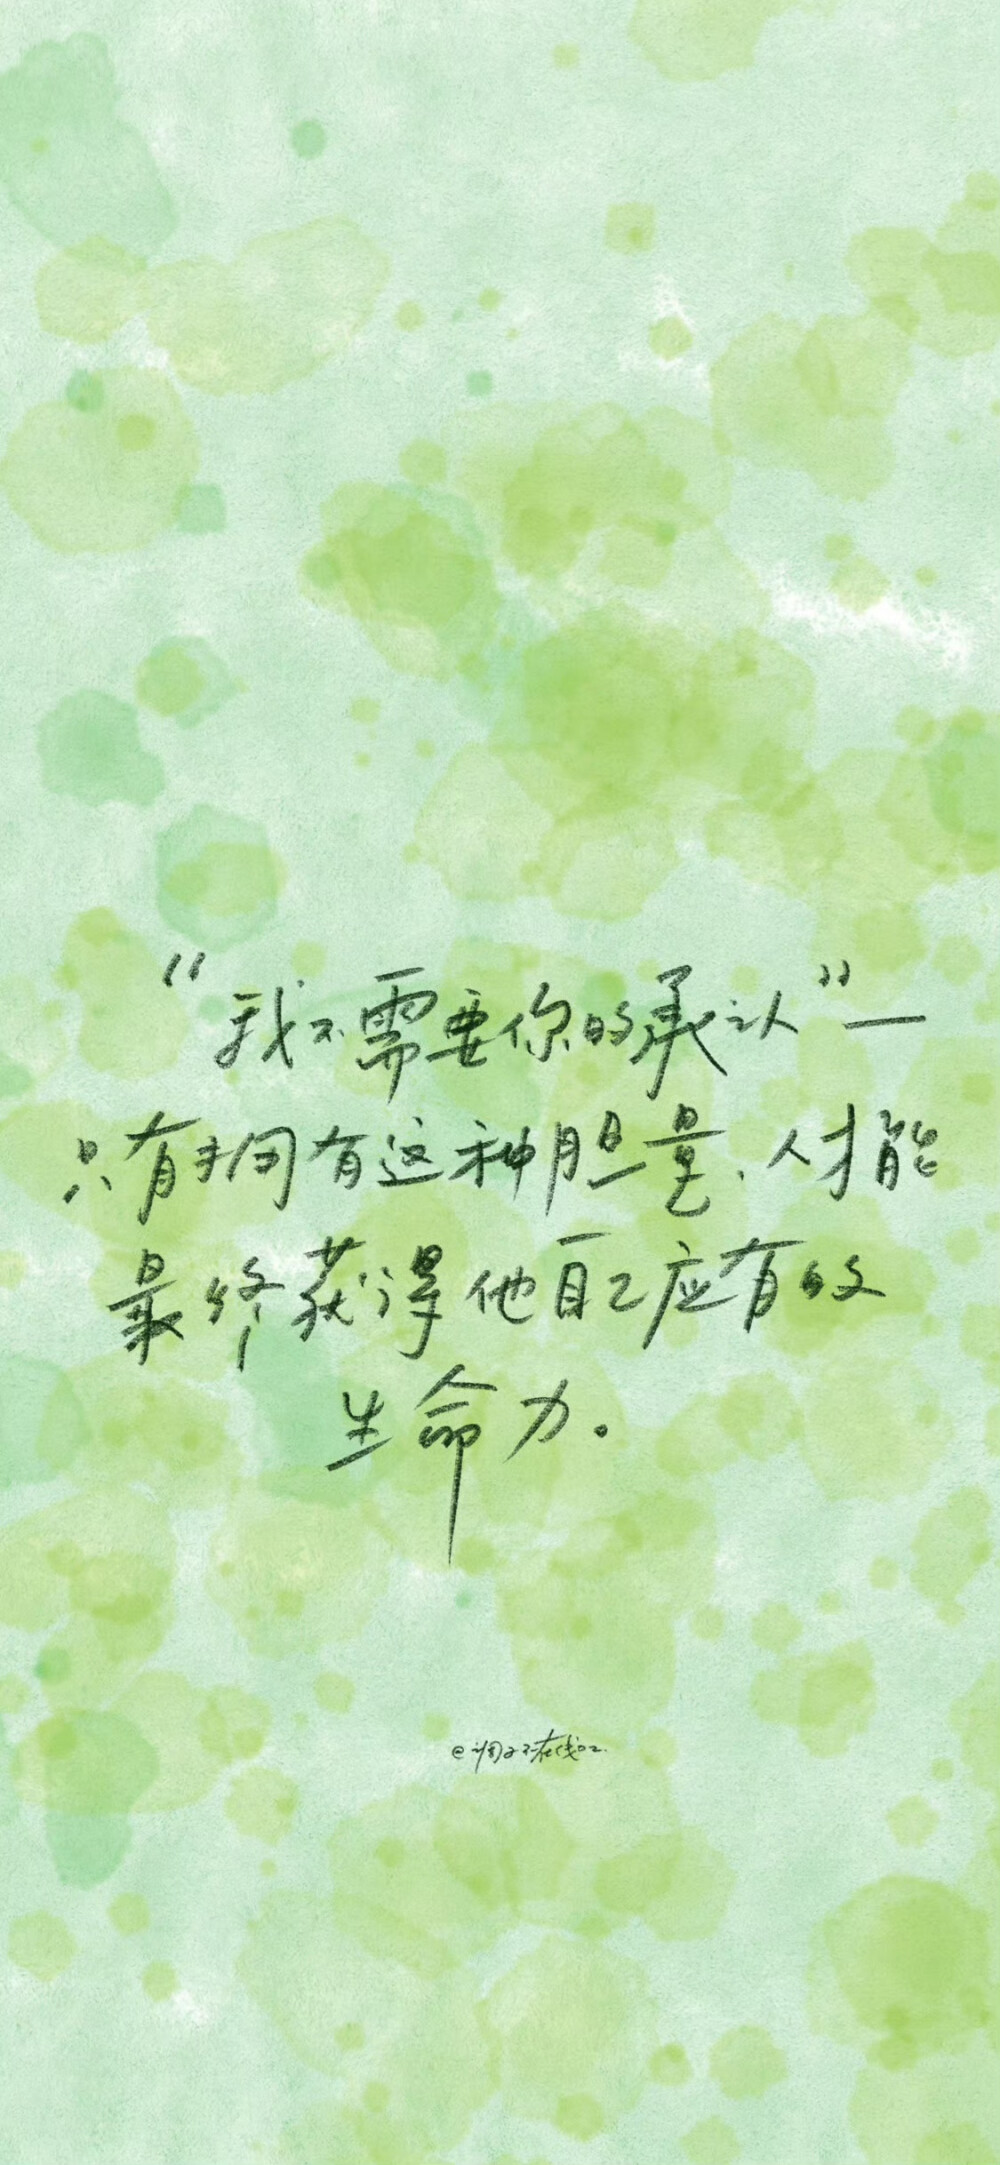 “我不需要你的承认”—
只有拥有这种胆量，人才能
最终获得他自己应有的
生命力。